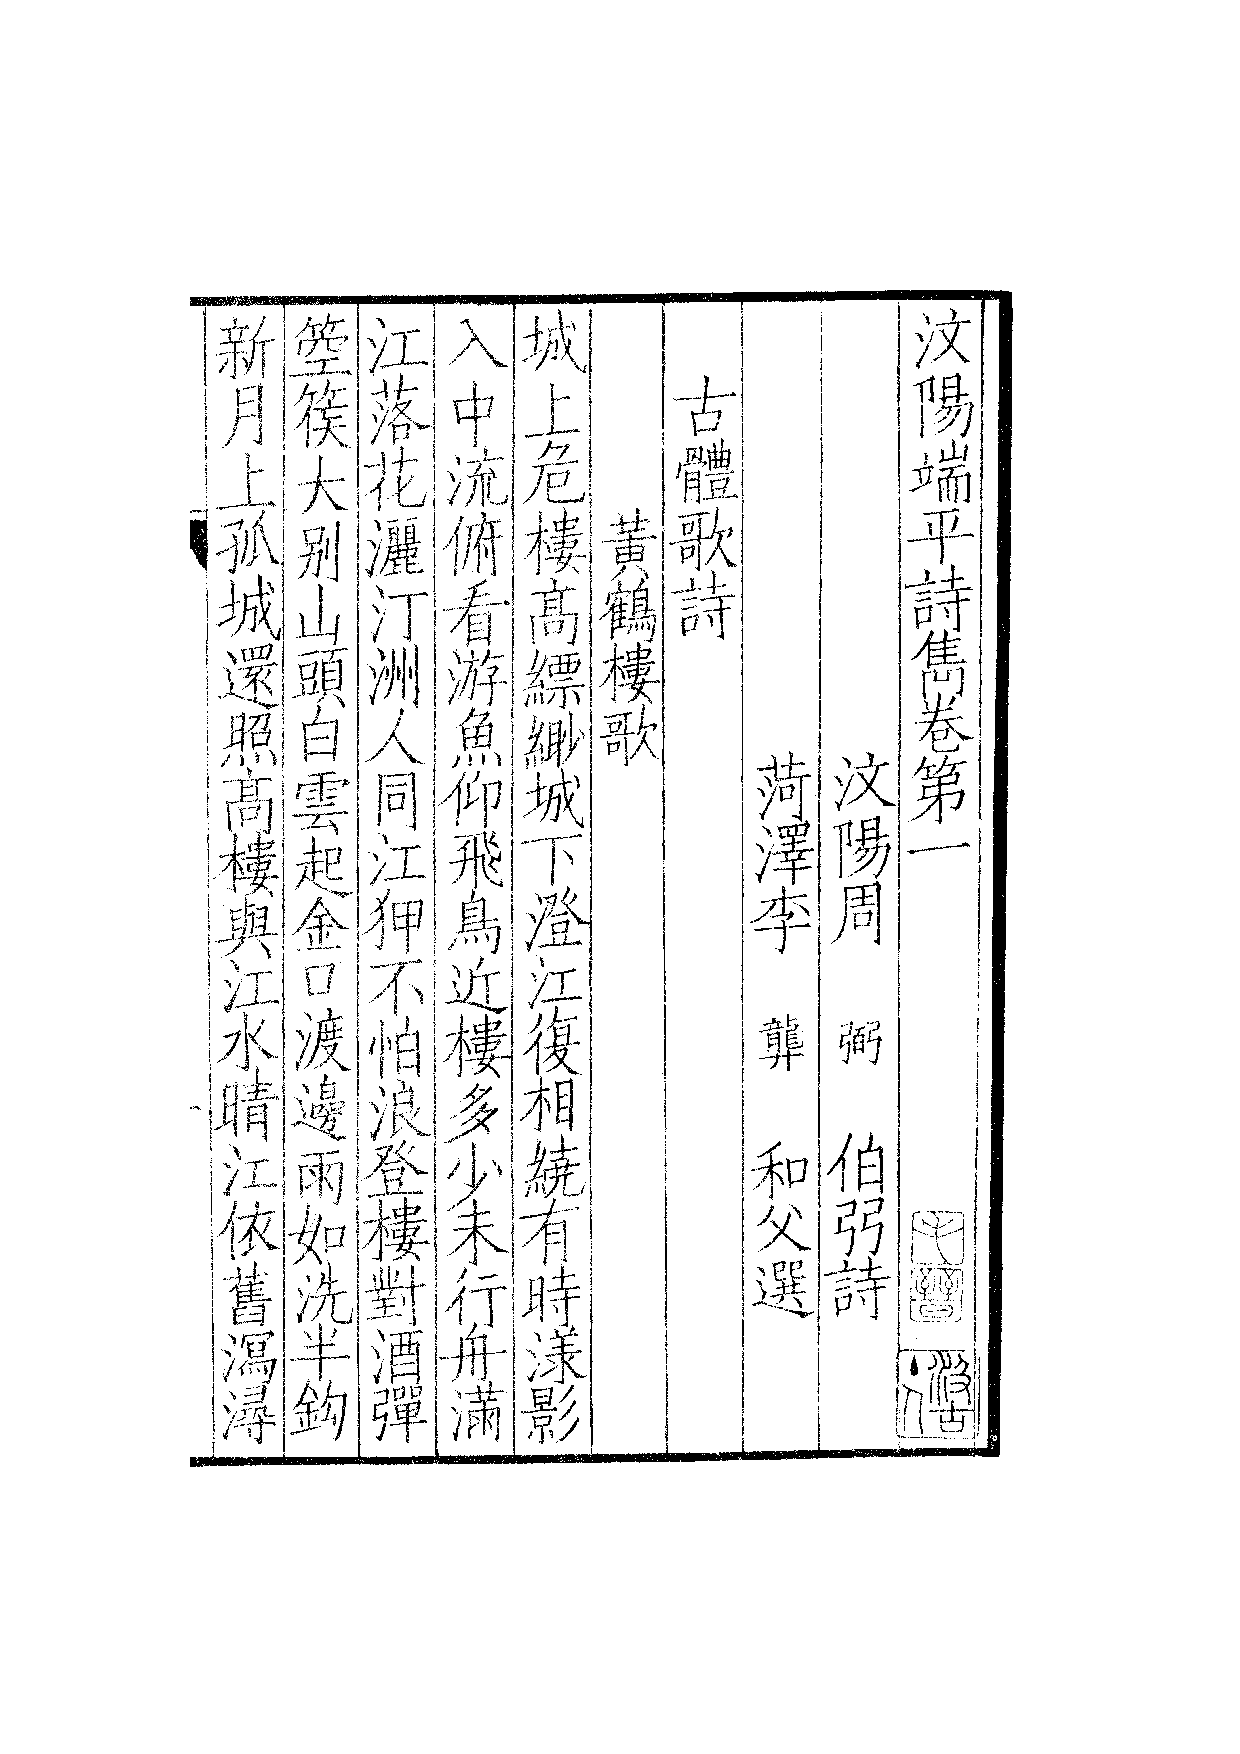 汶陽端平詩雋卷第一
汶陽周　弼　伯弜詩
菏澤李　龏　和父選
古體歌詩
黃鶴樓歌
城上危樓髙縹緲城下澄江復相繞有時漾影
入中流俯看游魚仰飛鳥近樓多少未行舟滿
江落花灑汀洲人同江狎不怕浪登樓對酒彈
箜篌大别山頭白雲起金口渡邊雨如洗半鈎
新月上孤城還照髙樓與江水晴江依舊瀉潯